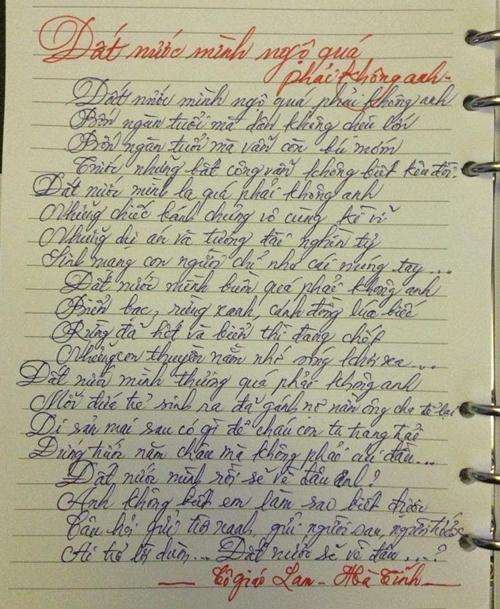 Đất nước mình ngộ quá
phải không anh -
Đất nước mình ngộ quá phải không anh
Bốn ngàn tuổi mà dân không chịu lớn
Bốn ngàn tuổi mà vẫn còn bú mớm
Trước những bất công vẫn không biết kêu đòi.
Đất nước mình lạ quá phải không anh
Những chiếc bánh chưng vô cùng kì vĩ
Những dự án và tượng đài nghìn tỷ
Sinh mạng con người chỉ như cái móng tay...
Đất nước mình buồn quá phải không anh
Biển bạc, rừng xanh, cánh đồng lúa biếc
Rừng đã hết và biển thì đang chết
Những con thuyền nằm nhớ sóng khơi xa...
Đất nước mình thương quá phải không anh
Mỗi đứa trẻ sinh ra đã gánh nợ nần ông cha để lại
Di sản mai sau có gì để cháu con ta trang trải
Đứng trước năm châu mà không phải cúi đầu...
Đất nước mình rồi sẽ về đâu anh?
Anh không biết em làm sao biết được
Câu hỏi gửi trời xanh, gửi người sau, người trước
Ai trả lời dùm... Đất nước sẽ về đâu...?
Cô giáo Lam - Hà Tĩnh -